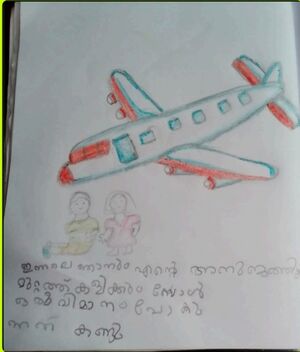 ഇന്നലെ ഞാനും എന്റെ അനുജത്തിയും
മുറ്റത്ത് കളിക്കുമ്പോൾ
ഒരു വിമാനം പോകു
ന്നത് കണ്ടു